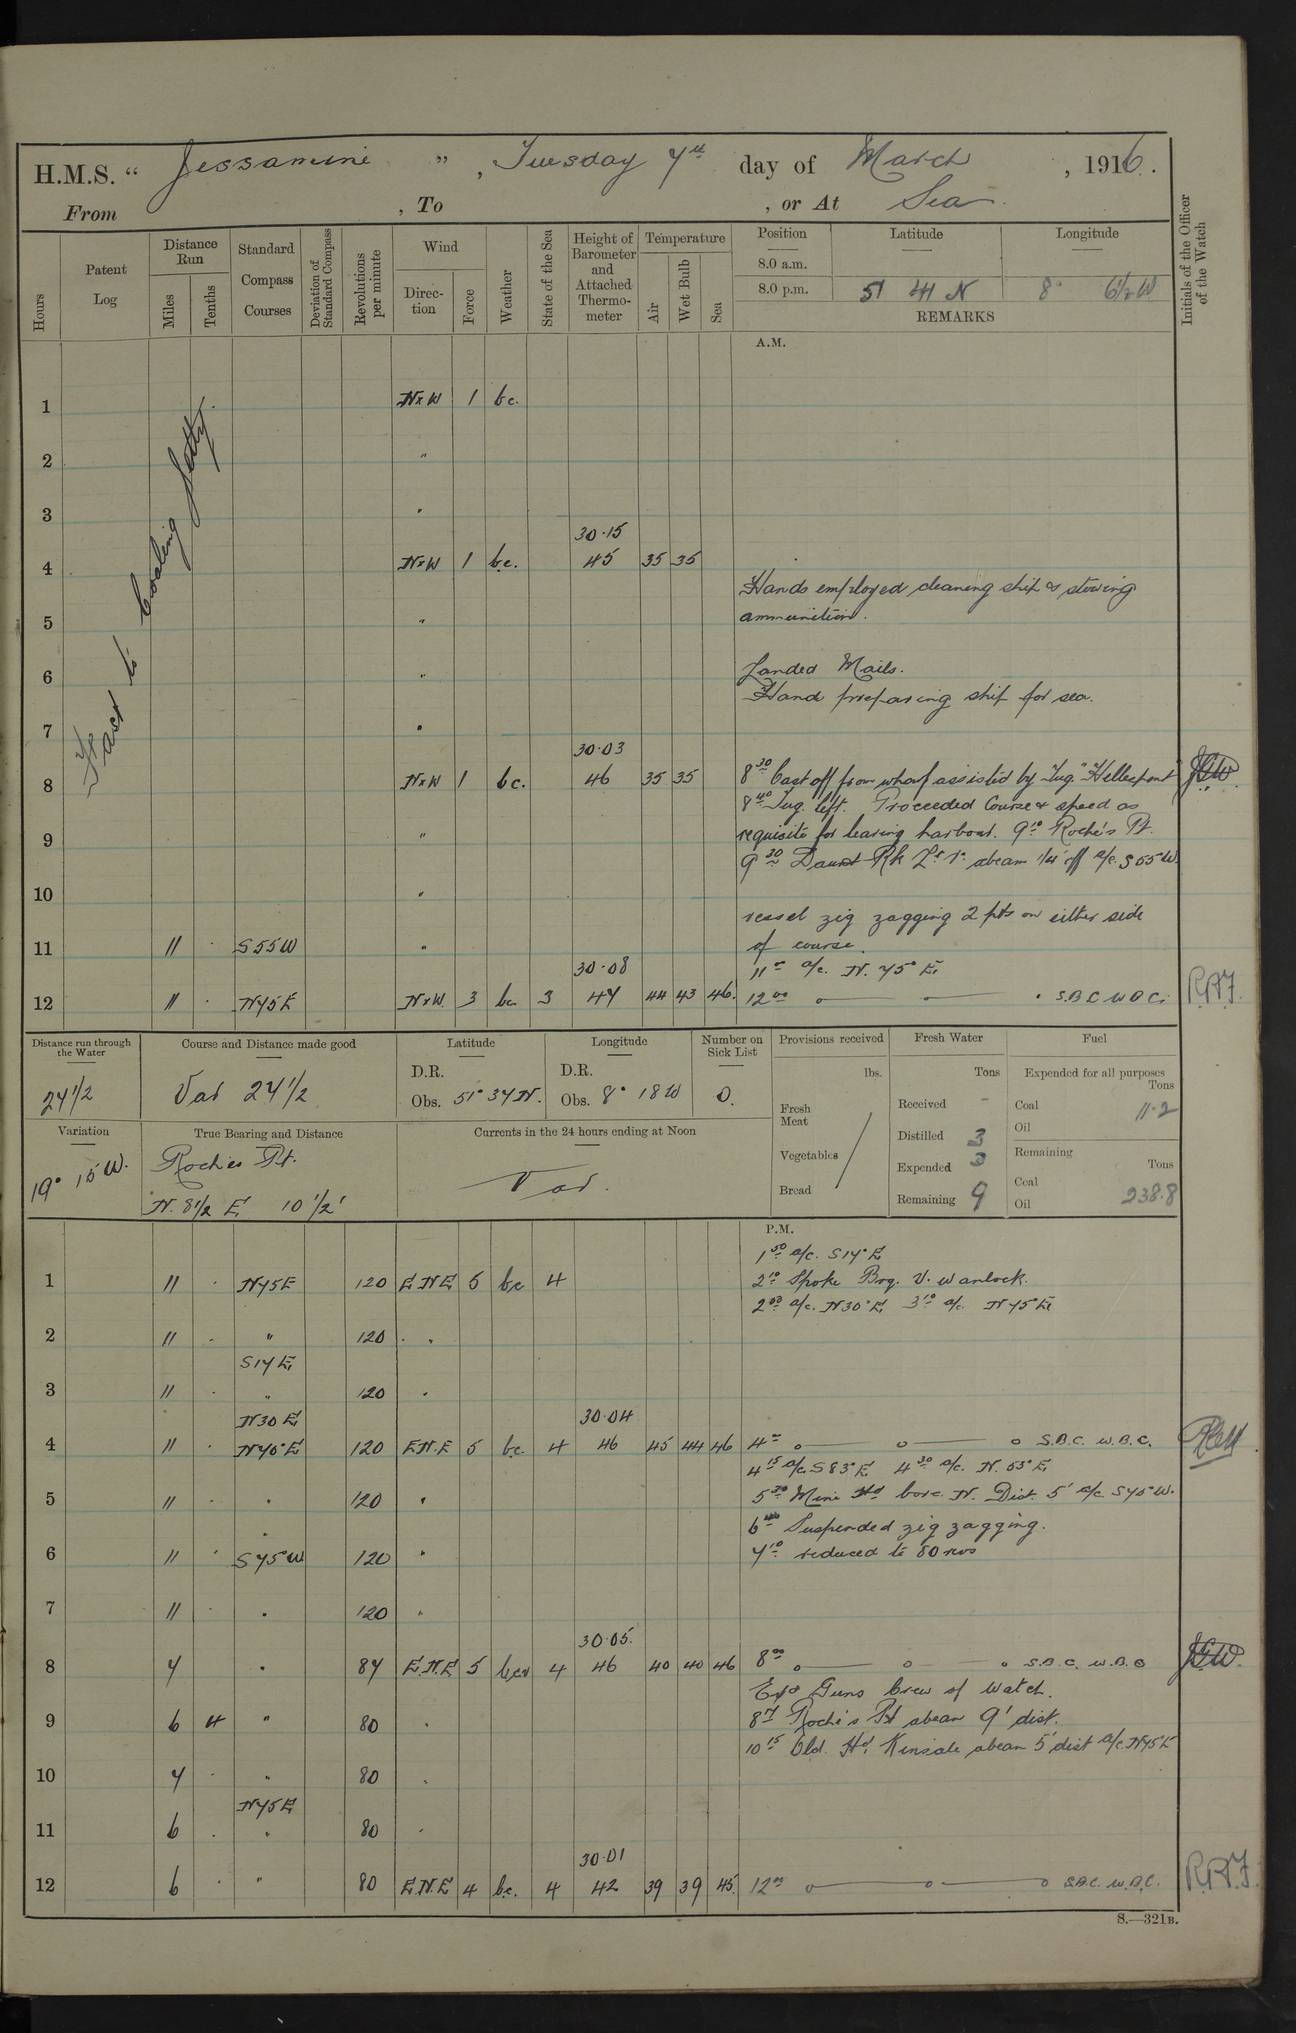 H.M.S. “ Jessamine ”, Tuesday 7th day of March, 1916.
From , To , or At Sea.
Hours
Patent Log
Distance Run
Miles
Tenths
Standard Compass Courses
Deviation of Standard Compass
Revolutions per minute
Wind
Direction
Force
Weather
State of the Sea
Height of Barometer and Attached Thermometer
Temperature
Air
Wet Bulb
Sea
Position
Latitude
Longitude
8.0 a.m.
8.0 p.m. 51 41 N 8° 6½ W
REMARKS
Initials of the Officer of the Watch
A.M.
Fast to Coaling Jetty
1 NxW 1 bc.
2 "
3 "
30.15
4 NxW 1 bc. 45 35 35
Hands employed cleaning ship & stowing
5 " ammunition.
6 " Landed Mails.
Hand preparing ship for sea.
7 "
30.03
8 NxW 1 bc. 46 35 35 8 30 Cast off from wharf assisted by Tug "Hellespont"
8 40 Tug left. Proceeded Course & speed as
9 " requisite for leaving harbour. 9 10 Roche's Pt.
9 30 Daunt Rk Lt V. abeam 1/4' off a/c. S 55° W
10 "
vessel zig zagging 2 pts on either side
11 11 . S55W " of course.
30.08 11 00 a/c. N. 75° E.
12 11 . N75E NxW. 3 bc. 3 47 44 43 46. 12 00 S.B.C. W.B.C. R.R.J.
Distance run through the Water
24½
Course and Distance made good
Var 24½
Latitude
D.R.
Obs. 51° 34 N.
Longitude
D.R.
Obs. 8° 18 W
Number on Sick List
0.
Variation
19° 15 W.
True Bearing and Distance
Roches Pt.
N. 8½ E 10½'
Currents in the 24 hours ending at Noon
Var.
Provisions received
lbs.
Fresh Meat
Vegetables
Bread
Fresh Water
Tons
Received -
Distilled 3
Expended 3
Remaining 9
Fuel
Expended for all purposes
Tons
Coal 11.2
Oil
Remaining
Tons
Coal 238.8
Oil
P.M.
1 50 a/c. S17°E
1 11 . N75E 120 ENE 5 bc 4 2 10 Spoke Brig. V. Wanlock.
a/c. N30°E 3 10 a/c. N75°E
2 11 . " 120 "
S17E
3 11 . " 120 "
N30E 30.04
4 11 . N75°E 120 E.N.E 5 bc 4 46 45 44 46 4 00 S.B.C. W.B.C.
4 15 a/c S83°E 4 30 a/c. N.
5 11 . " 120 " 5 30 Mine Hd bore N. Dist. 5' a/c S75°W.
" 6 Suspended zig zagging.
6 11 . S75°W 120 " 7 10 reduced to 80 revs
7 11 . " 120 "
30.05.
8 7 " 87 E.N.E 5 4 46 40 40 46 8 00 S.B.C. W.B.C
Exd Guns Crew of Watch.
9 6 4 " 80 " Roche's Pt abeam 9' dist.
10 15 Old. Hd. Kinsale abeam 5' dist a/c N75E
10 7 . " 80 "
N75E
11 6 . " 80 "
30.01
12 6 . " 80 E.N.E 4 bc. 4 42 39 39 45. 12 00 S.B.C. W.B.C. R.R.J.
S.—321B.